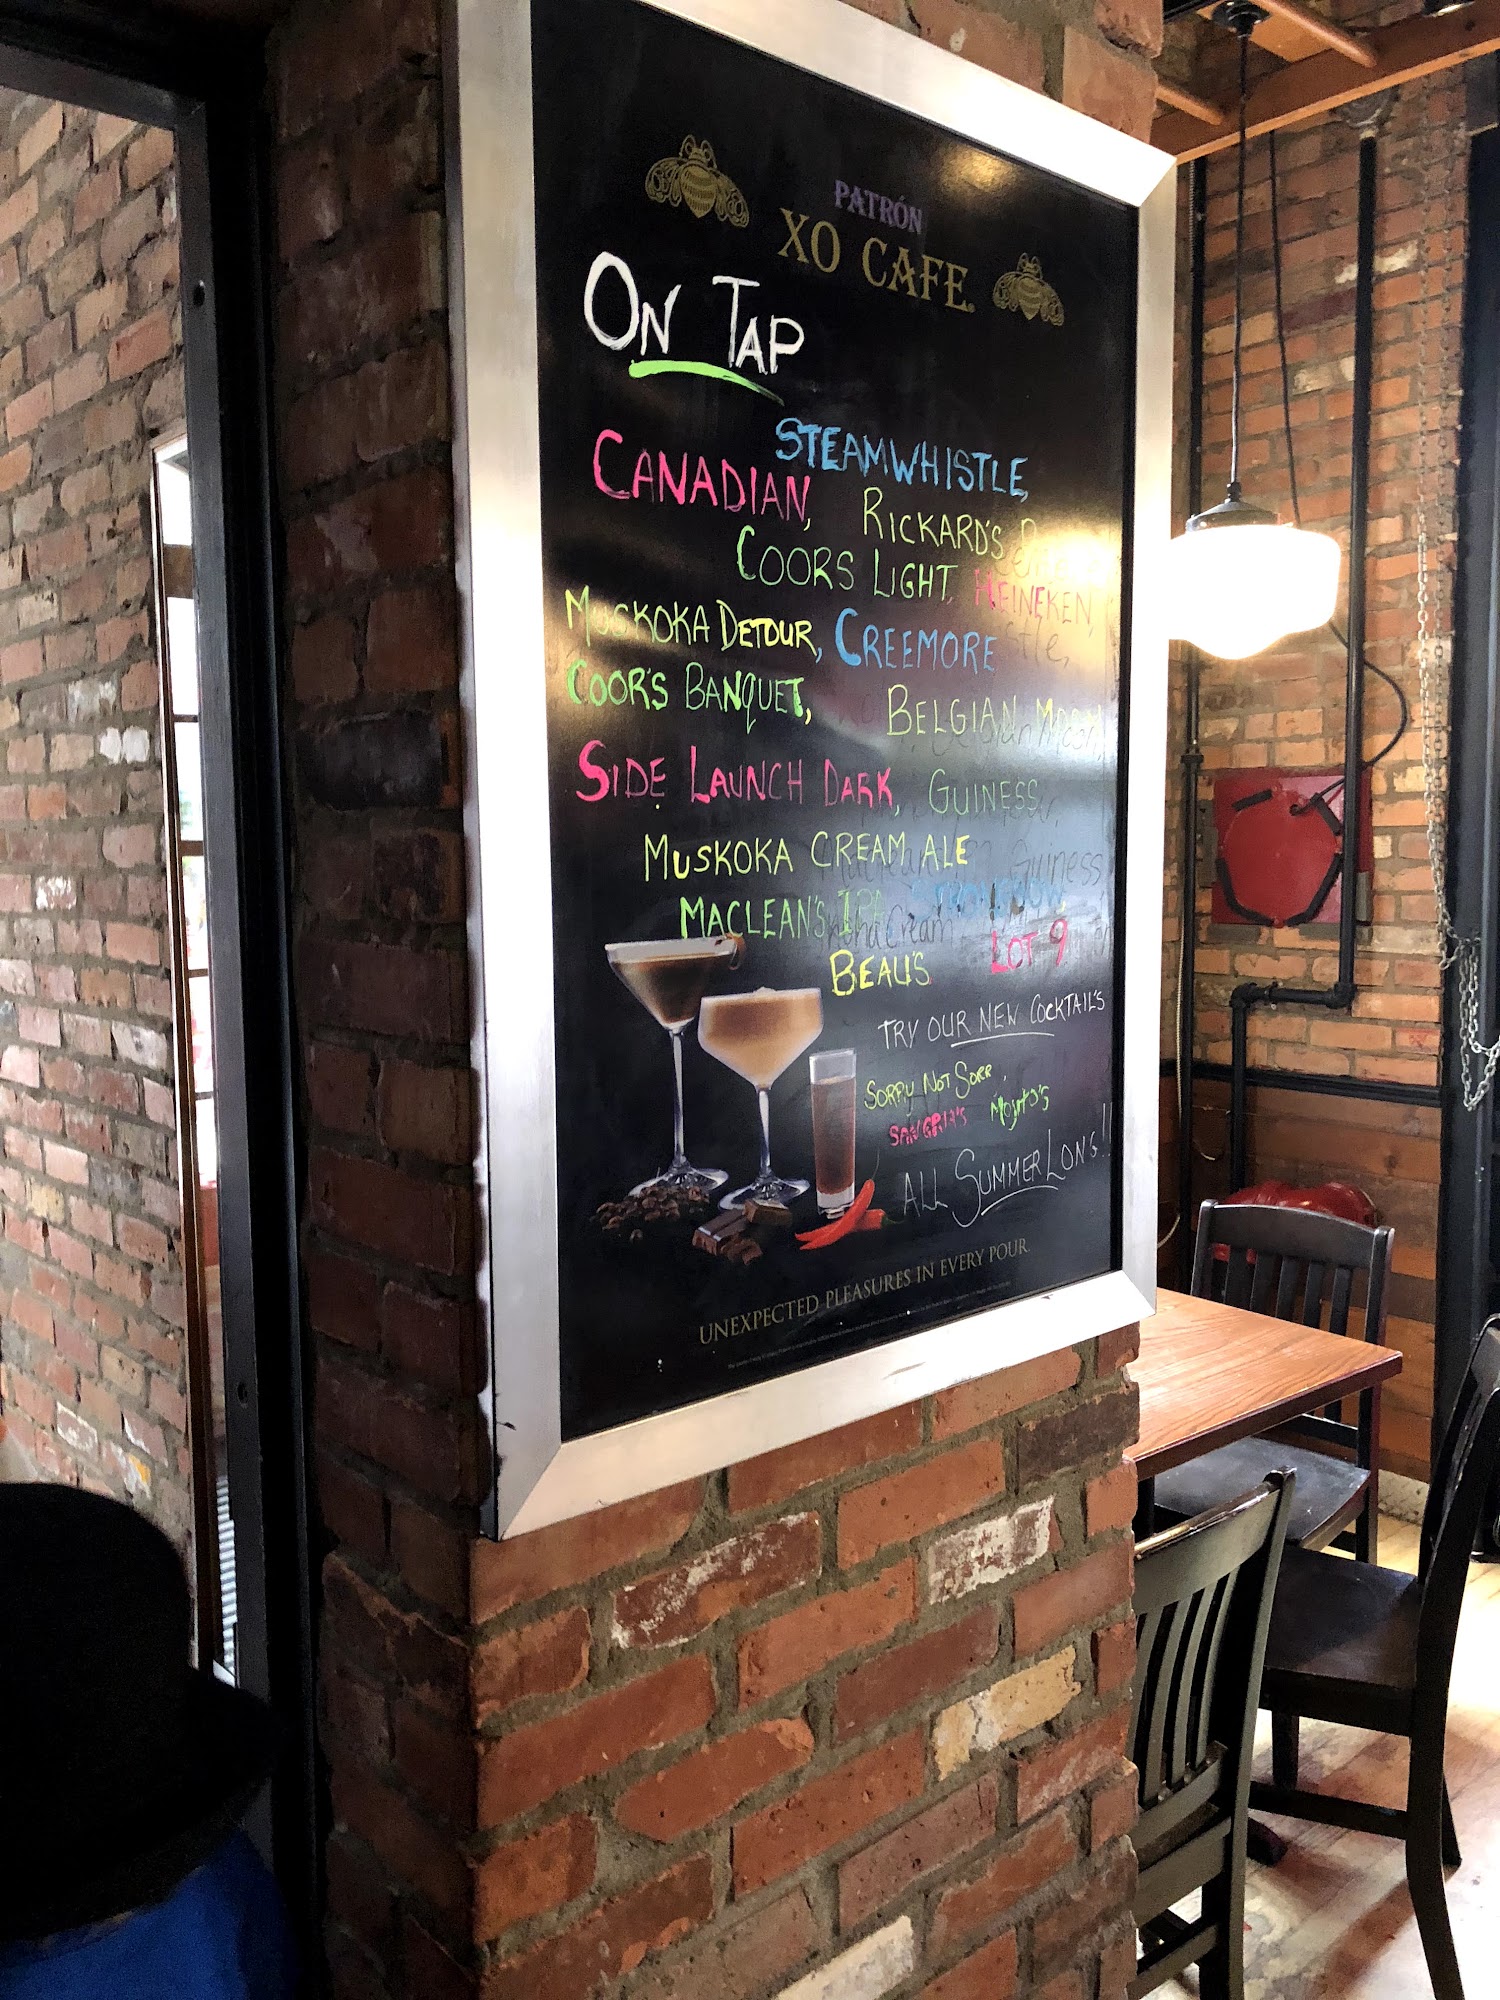 PATRÓN
XO CAFE
ON TAP
STEAMWHISTLE,
CANADIAN, RICKARD'S
COORS LIGHT, HEINEKEN,
MUSKOKA DETOUR, CREEMORE
COOR'S BANQUET, BELGIAN MOON
SIDE LAUNCH DARK, GUINESS
MUSKOKA CREAM ALE
MACLEAN'S IPA
BEAU'S LOT 9
TRY OUR NEW COCKTAIL'S
SORRY NOT SORR,
SANGRIA'S MOJITO'S
ALL SUMMER LON'G!!
UNEXPECTED PLEASURES IN EVERY POUR